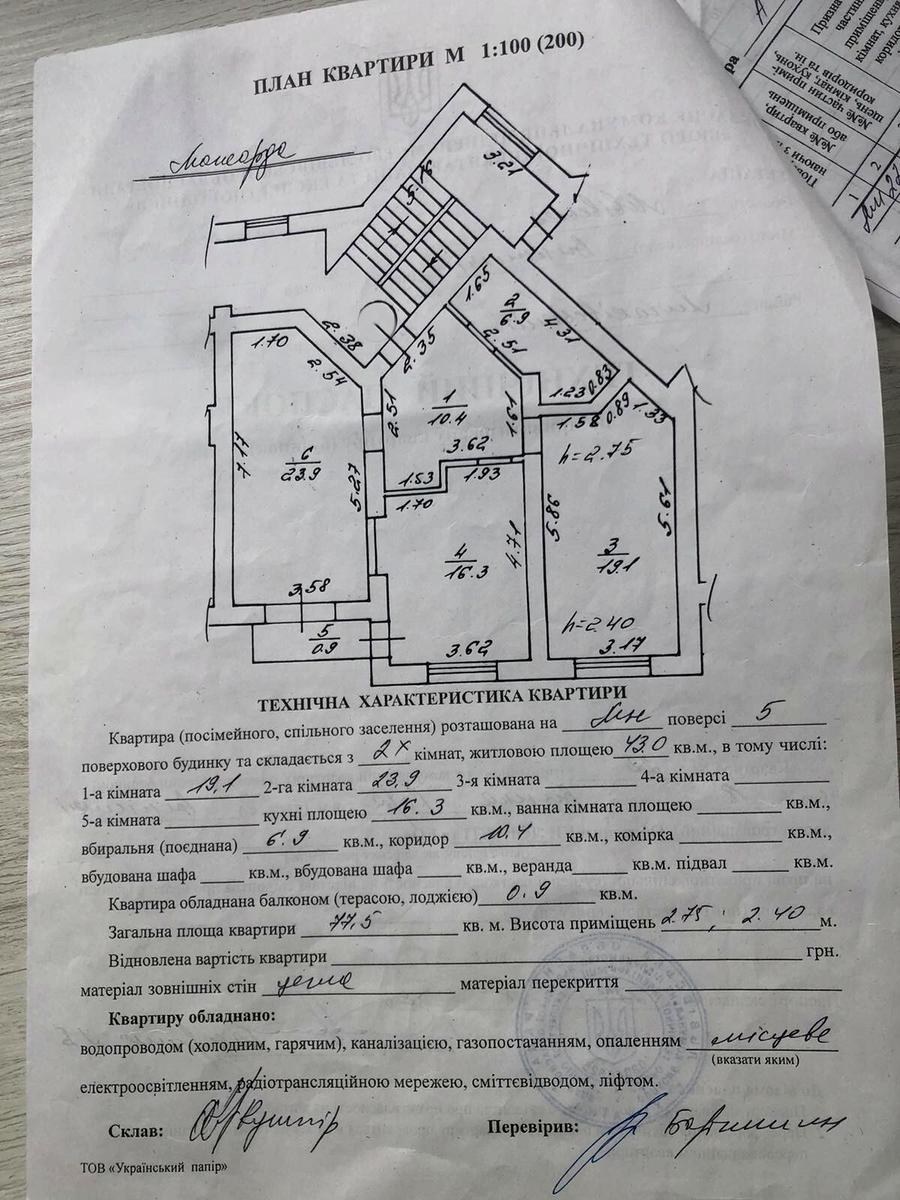 ПЛАН КВАРТИРИ М 1:100 (200)
Мансарда
3.21
5.16
1.65
2
6.9
4.31
2.51
2.38
2.35
1.70
2.54
2.51
1
10.4
1.61
1.23
0.83
0.89
1.33
1.58
h=2.75
7.17
6
23.9
5.27
3.62
1.53
1.93
1.70
4
16.3
4.71
5.86
5.61
3
19.1
3.58
5
0.9
3.62
h=2.40
3.17
ТЕХНІЧНА ХАРАКТЕРИСТИКА КВАРТИРИ
Квартира (посімейного, спільного заселення) розташована на мн поверсі 5
поверхового будинку та складається з 2х кімнат, житловою площею 43.0 кв.м., в тому числі:
1-а кімната 19.1 2-га кімната 23.9 3-я кімната 4-а кімната
5-а кімната кухні площею 16.3 кв.м., ванна кімната площею кв.м.,
вбиральня (поєднана) 6.9 кв.м., коридор 10.4 кв.м., комірка кв.м.,
вбудована шафа кв.м., вбудована шафа кв.м., веранда кв.м. підвал кв.м.
Квартира обладнана балконом (терасою, лоджією) 0.9 кв.м.
Загальна площа квартири 77,5 кв. м. Висота приміщень 2.75; 2.40 м.
Відновлена вартість квартири грн.
матеріал зовнішніх стін цегла матеріал перекриття
Квартиру обладнано:
водопроводом (холодним, гарячим), каналізацією, газопостачанням, опаленням місцеве
(вказати яким)
електроосвітленням, радіотрансляційною мережею, сміттєвідводом, ліфтом.
Склав: Перевірив:
ТОВ «Український папір»
№№ квартир,
або приміщень
№№ частин примі-
щень, кімнат, кухонь,
коридорів та ін.